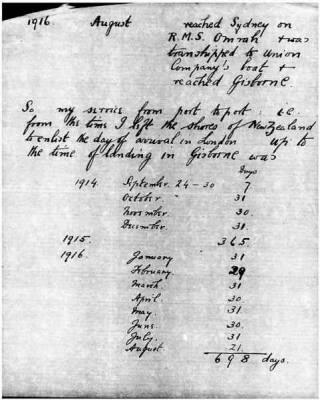 1916. August reached Sydney on
R.M.S. Omrah & was
transhipped to Union
Company's boat &
reached Gisborne.
So my service from port to port i.e.
from the time I left the shores of New Zealand
to enlist the day of arrival in London up to
the time of landing in Gisborne was
Days
1914. September 24-30 7
October 31
November 30.
December 31.
1915. 365.
1916. January 31
February 29
March 31
April 30
May. 31
June. 30.
July. 31
August 21.
698 days.